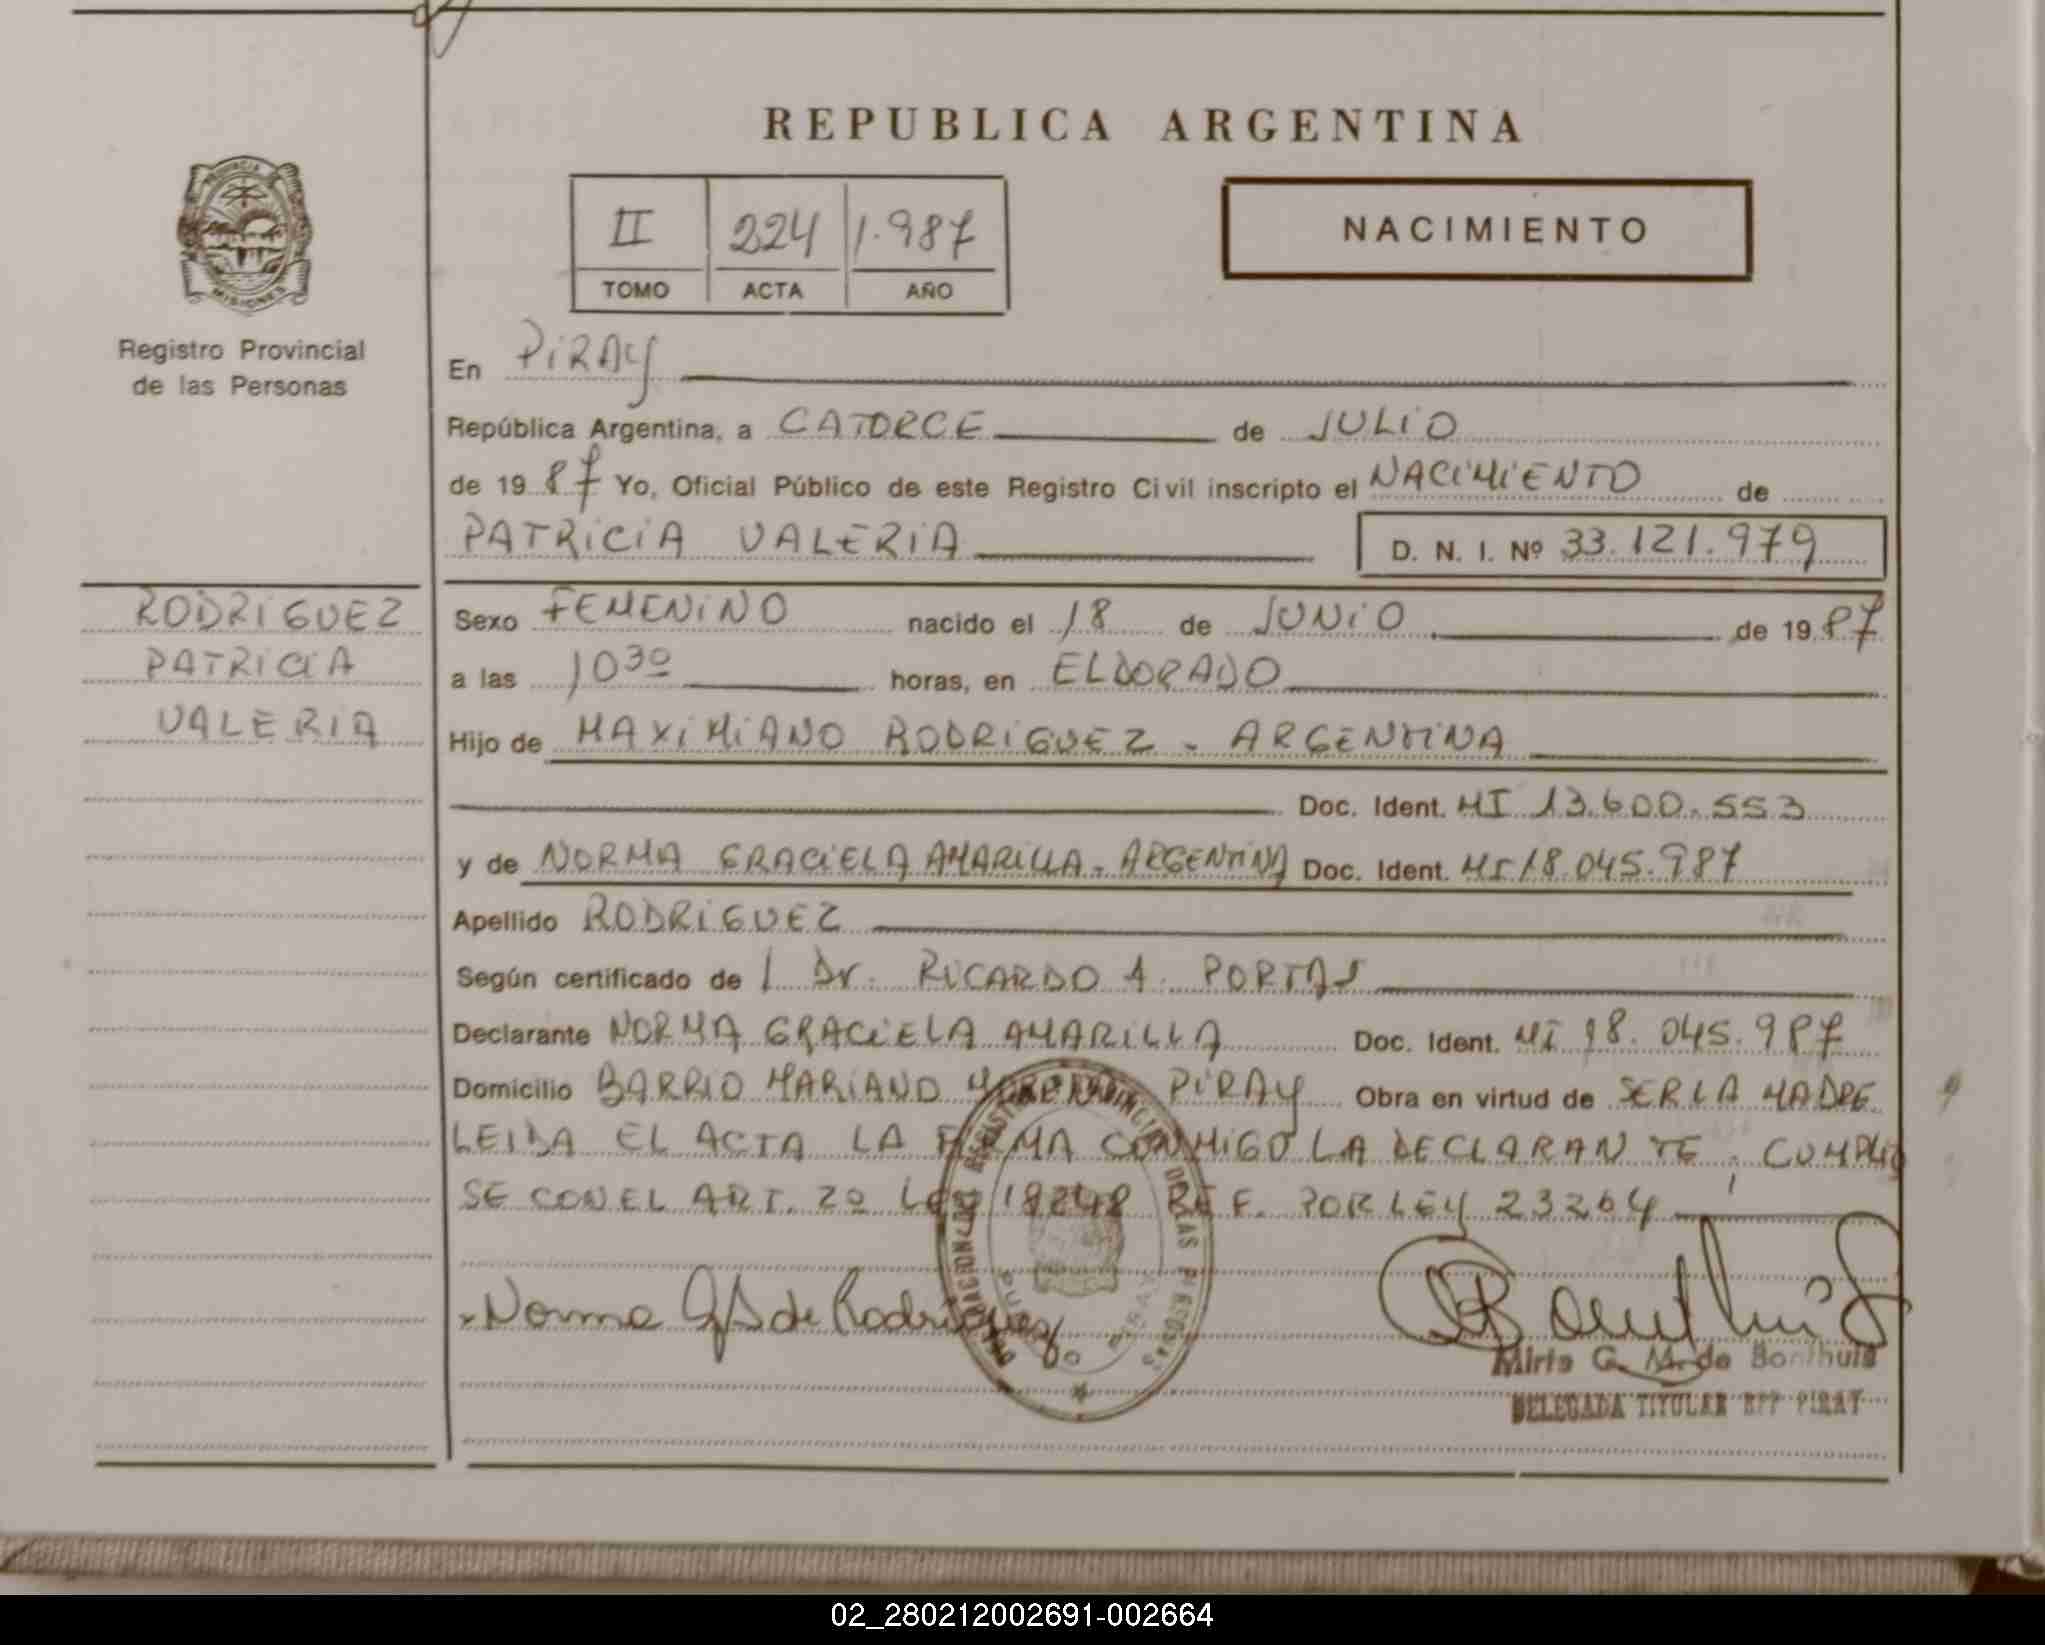 REPUBLICA ARGENTINA
PROVINCIA DE
MISIONES
Registro Provincial
de las Personas
II 224 1.987
TOMO ACTA AÑO
NACIMIENTO
En PIRAY
República Argentina, a CATORCE de JULIO
de 19 87 Yo, Oficial Público de este Registro Civil inscripto el NACIMIENTO de
PATRICIA VALERIA D. N. I. Nº 33.121.979
RODRIGUEZ
PATRICIA
VALERIA
Sexo FEMENINO nacido el 18 de JUNIO de 19 87
a las 10 30 horas, en ELDORADO
Hijo de MAXIMIANO RODRIGUEZ - ARGENTINA
Doc. Ident. MI 13.600.553
y de NORMA GRACIELA AMARILLA - ARGENTINA Doc. Ident. MI 18.045.987
Apellido RODRIGUEZ
Según certificado de l Dr. RICARDO A. PORTAS
Declarante NORMA GRACIELA AMARILLA Doc. Ident. MI 18.045.987
Domicilio BARRIO MARIANO MORENO PIRAY Obra en virtud de SER LA MADRE
LEIDA EL ACTA LA FIRMA CONMIGO LA DECLARANTE, CUMPLIO
SE CON EL ART. 2º LEY 18248 REF. POR LEY 23264
Norma G A de Rodríguez
REGISTRO PROVINCIAL DE LAS PERSONAS
PUERTO PIRAY
Mirta G. M. de Bonthuis
DELEGADA TITULAR RPP PIRAY
02_280212002691-002664